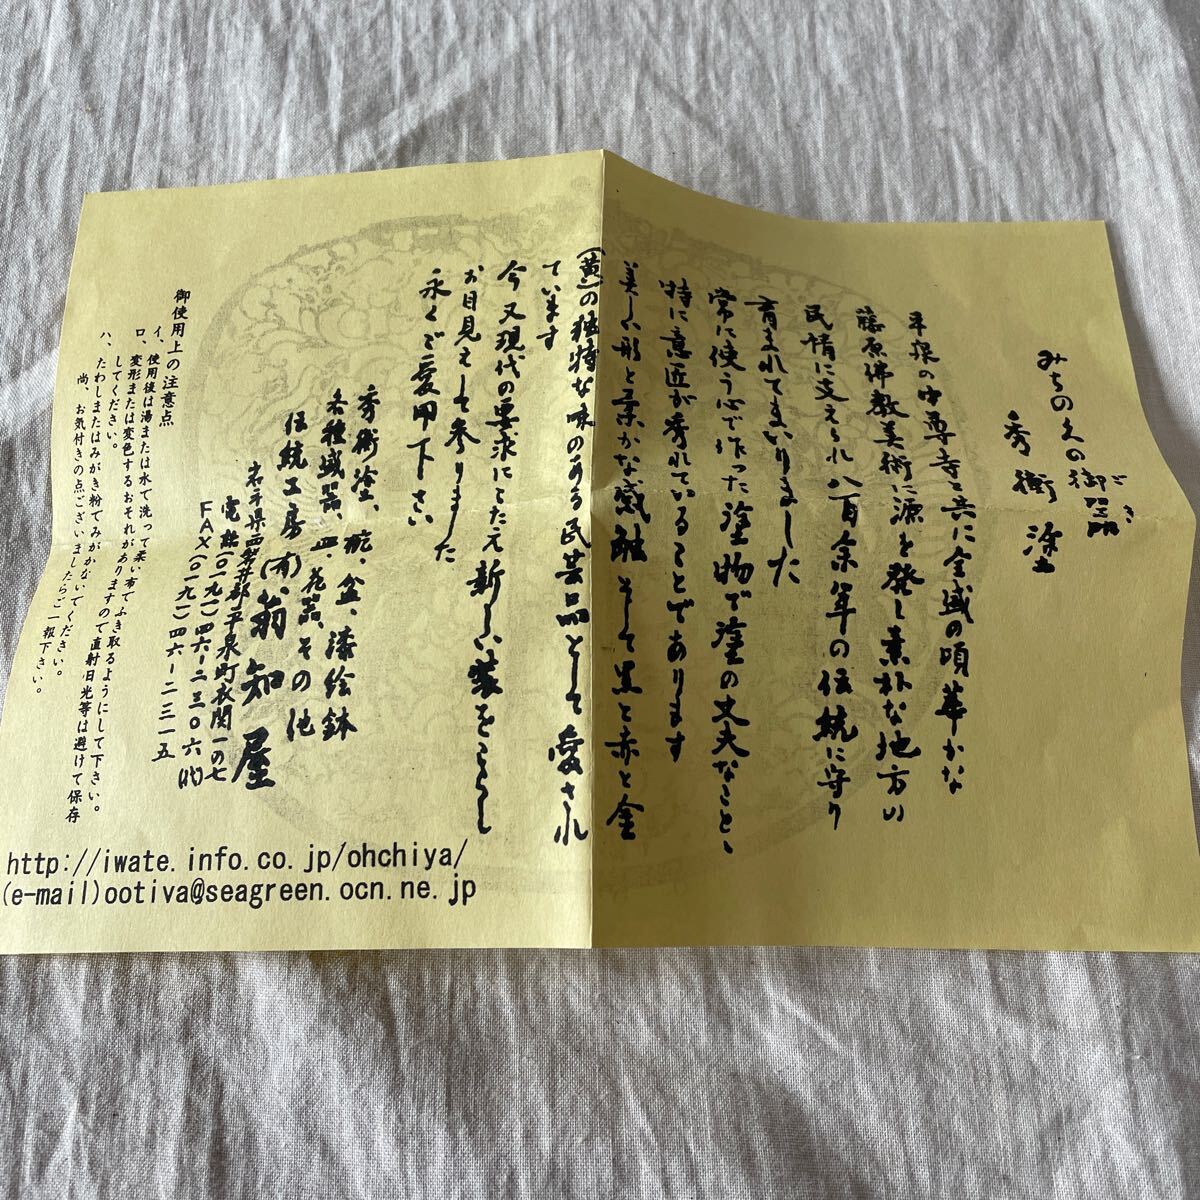 みちのくの御器
ごき
秀衡塗
平泉の中尊寺と共に全盛の頃華かな
藤原佛教美術に源を発し素朴な地方の
民情に支えられ八百余年の伝統に守り
育まれてまいりました
常に使う心で作った塗物で塗の丈夫なこと、
特に意匠が秀れていることであります
美しい形と柔かな感触そして黒と赤と金
(黄)の独特な味のある民芸品として愛され
ています
今又現代の要求にこたえ新しい装をこらし
お目見えして参りました
永くご愛用下さい
秀衡塗、椀、盆、漆絵鉢
各種盛器、皿、花器、その他
伝統工房(有)翁知屋
岩手県西磐井郡平泉町衣関一の七
電話(〇一九一)四六-二三〇六(代)
FAX(〇一九一)四六-二三一五
御使用上の注意点
イ、使用後は湯または水で洗って柔い布でふき取るようにして下さい。
ロ、変形または変色するおそれがありますので直射日光等は避けて保存
してください。
ハ、たわしまたはみがき粉でみがかないでください。
尚、お気付きの点ございましたらご一報下さい。
http://iwate.info.co.jp/ohchiya/
(e-mail)ootiya@seagreen.ocn.ne.jp